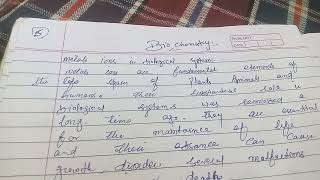 Bio chemistry
metals ions in biological systems
metals ions are fundamental elements of
life span of Plants Animals and
humans. their substantial role in
biological systems was recognised a
long time ago. they are essential
for the maintance of life
and their absence can cause
growth disorder several malfunctions
death